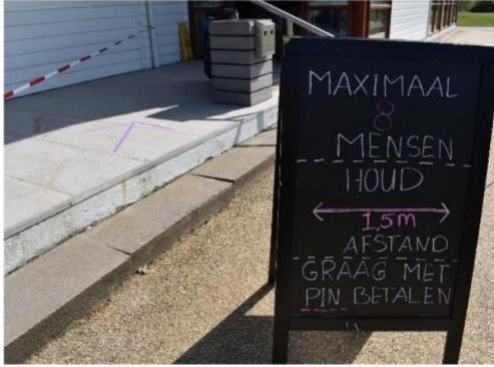 MAXIMAAL
8
MENSEN
HOUD
1,5m
AFSTAND
GRAAG MET
PIN BETALEN